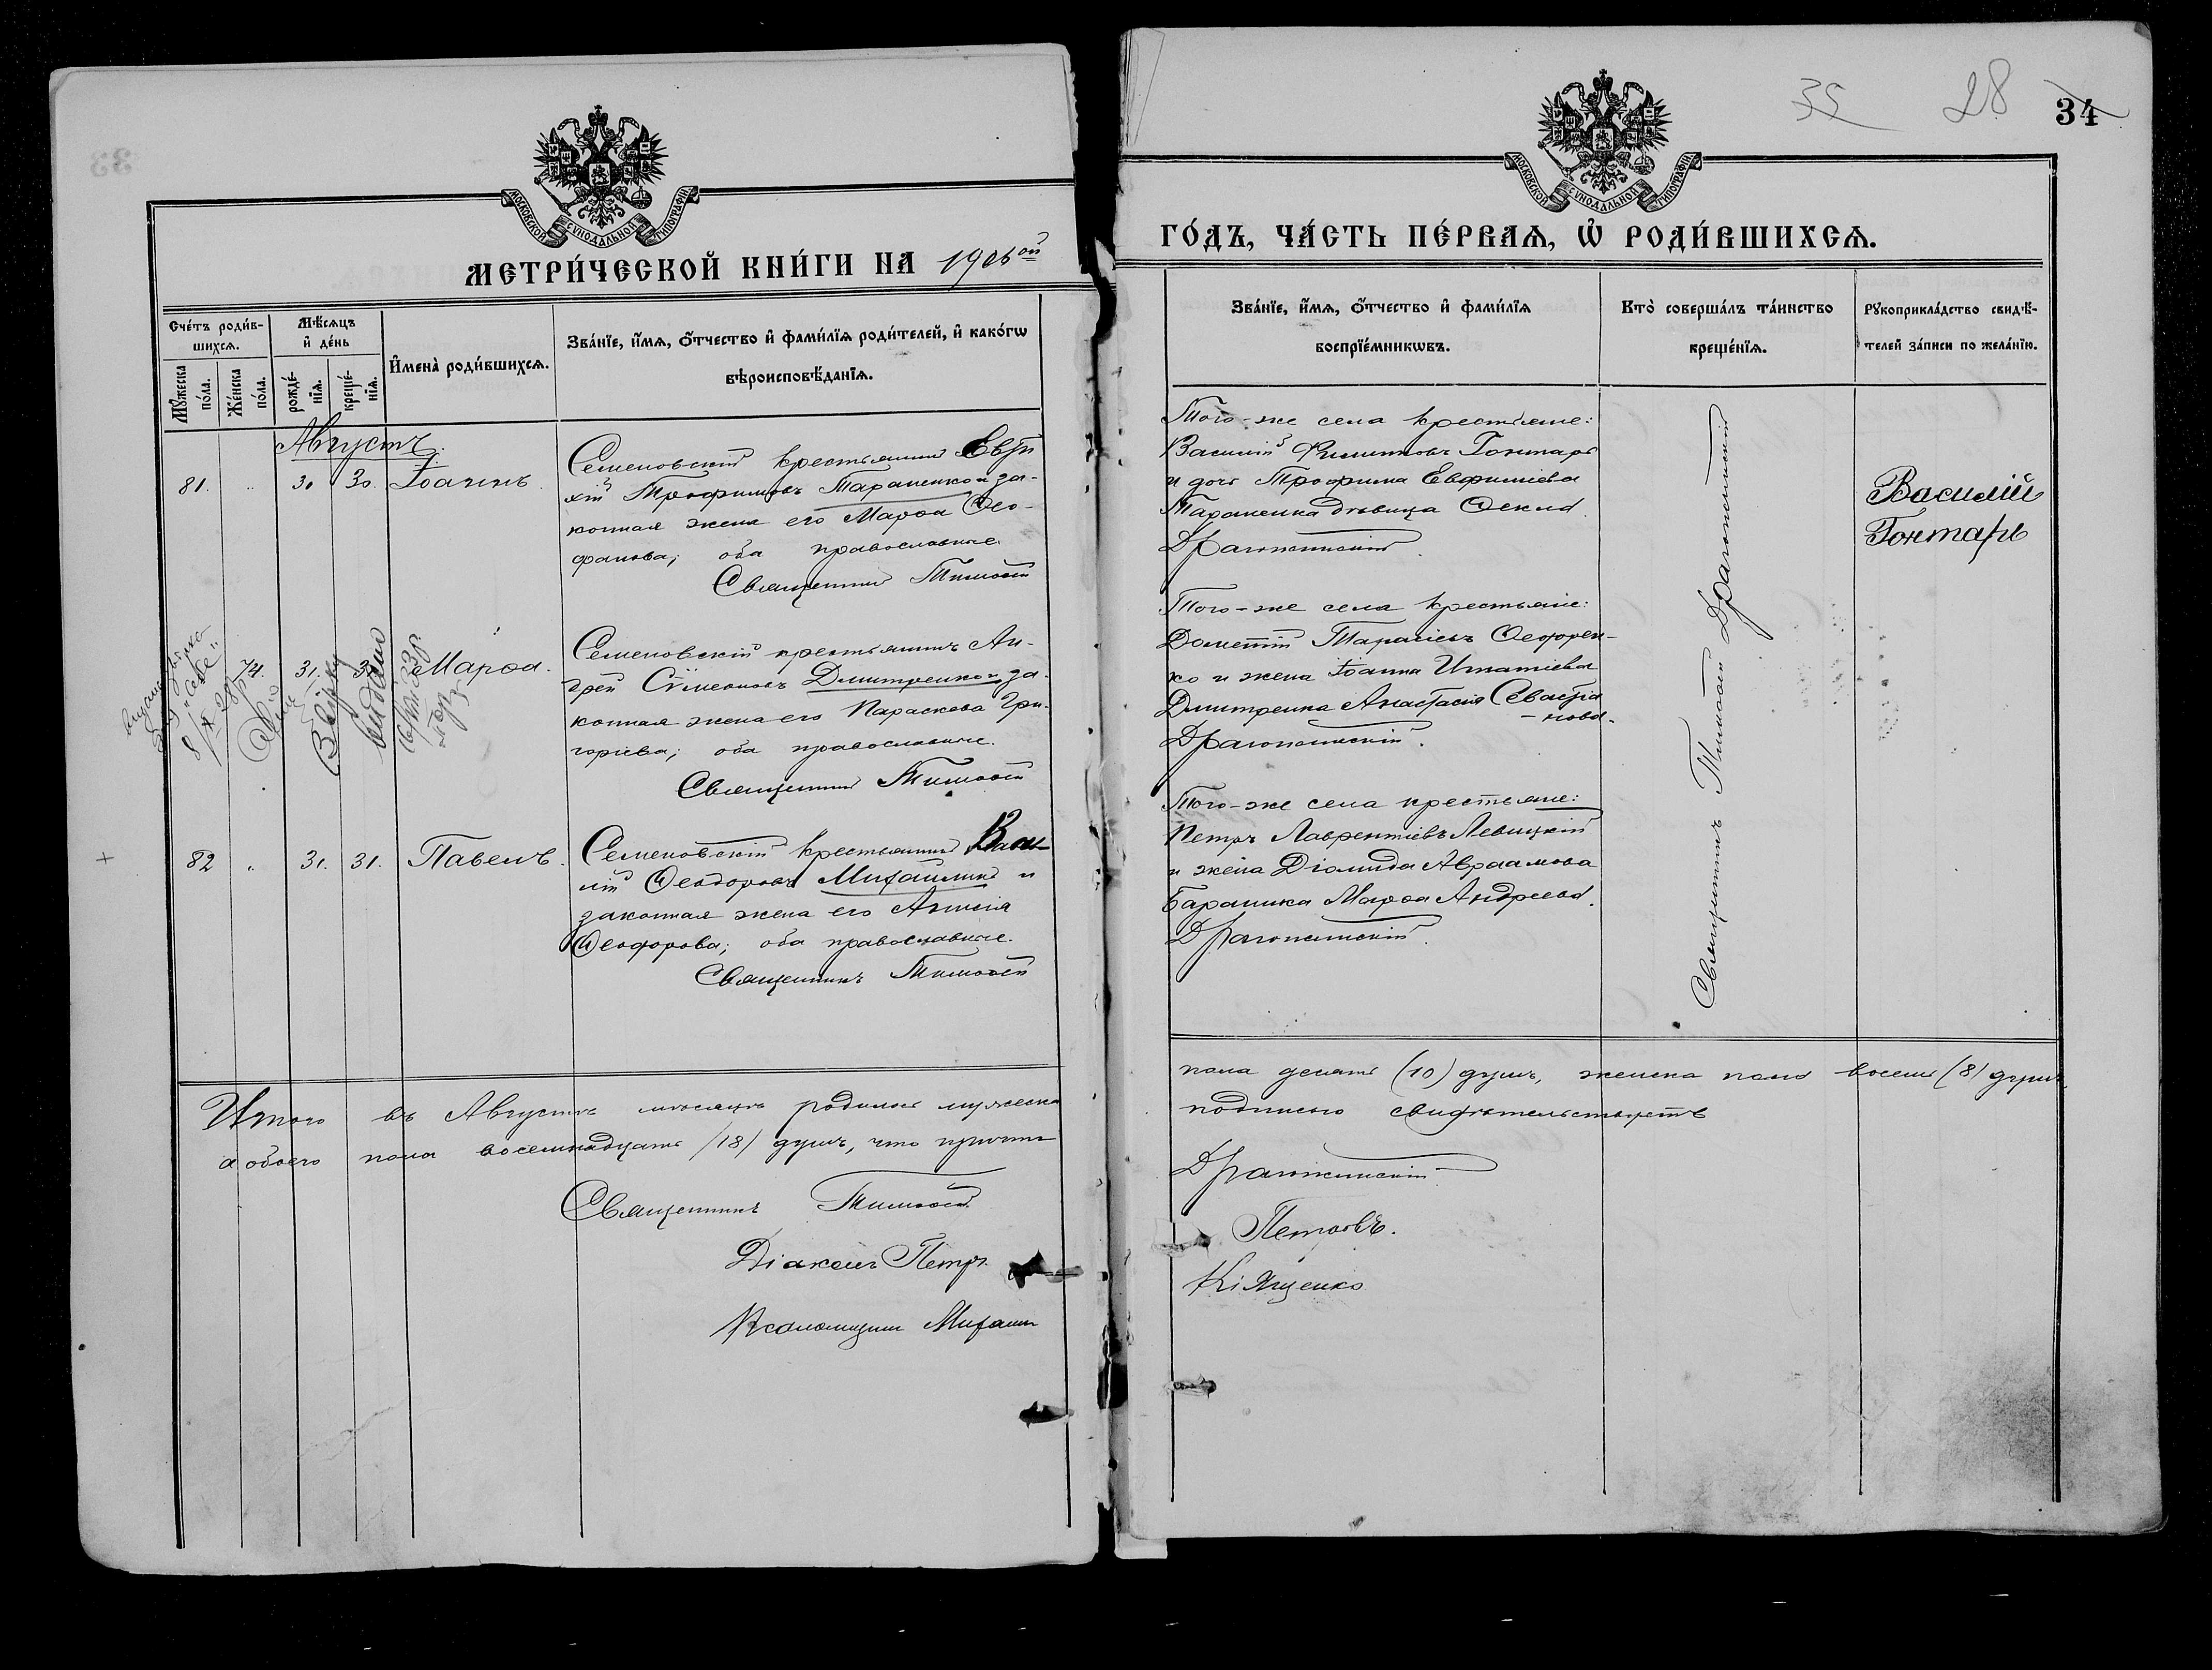 33
МОСКОВСКОЙ СѴНОДАЛЬНОЙ ТИПОГРАФІИ
МЕТРИ́ЧЕСКОЙ КНИ́ГИ НА 1906ой
Сче́тъ роди́в-
шихсѧ.
Мѣ́сѧцъ
и҆ де́нь
Мꙋ́жеска
по́ла.
Же́нска
по́ла.
рожде́-
нїѧ.
креще́-
нїѧ.
И҆мена̀ роди́вшихсѧ.
Зва́нїе, и҆́мѧ, ѻ҆́тчество и҆ фами́лїѧ роди́телей, и҆ како́гѡ
вѣроисповѣ́данїѧ.
Августъ.
81. „ 30 30. Іоаннъ.
Семеновскій крестьянинъ Евти
хій Трофимовъ Тараненко и за-
конная жена его Марѳа Ѳео-
фанова; оба православные.
Священникъ Тимоѳей
74. 31. 31. Марѳа.
Семеновскій крестьянинъ Ан-
дрей Сѷмеоновъ Дмитренко и за-
конная жена его Параскева Гри-
горіева; оба православные.
Священникъ Тимоѳей
82 „ 31. 31. Павелъ.
Семеновскій крестьянинъ Васи-
лій Ѳеодоровъ Михайлик и
законная жена его
Ѳеодорова; оба православные.
Священникъ Тимоѳей
Итого въ Августѣ мѣсяцѣ родилось мужеска
а обоего пола восемнадцать /18/ душъ, что причтъ
Священникъ Тимоѳей
Діаконъ Петръ
Псаломщикъ Михаилъ
35 28 34
МОСКОВСКОЙ СѴНОДАЛЬНОЙ ТИПОГРАФІИ
ГО́ДЪ, ЧА́СТЬ ПЕ́РВАѦ, Ѡ҆ РОДИ́ВШИХСѦ.
Зва́нїе, и҆́мѧ, ѻ҆́тчество и҆ фами́лїѧ
воспрїе́мникѡвъ.
Кто̀ соверша́лъ та́инство
креще́нїѧ.
Рꙋкоприкла́дство свидѣ́-
телей за́писи по жела́нїю.
Того-же села крестьяне:
Василій Филиповъ Гонтарь
и дочь Трофима Евфиміева
Тараненка дѣвица
Драгожинскій.
Того-же села крестьяне:
Дометій Тарасіевъ Ѳеофрен-
ко и жена Іоанна Игнатіева
Дмитренка Анастасія Севастіа
-нова.
Драгожинскій.
Того-же села крестьяне:
Петръ Лаврентіевъ Левицкій
и жена Діомида Авраамова
Бараника Марѳа Андреева.
Драгожинскій.
Священникъ Тимоѳей Драгожинскій
Василій
Гонтарь
пола десять (10) душъ, женска пола восемь (8) душъ,
подписью свидѣтельствуетъ
Драгожинскій
Петровъ.
Кіященко